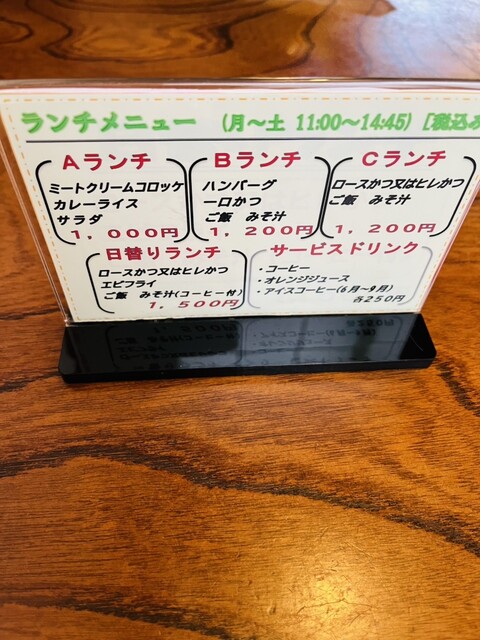 ランチメニュー (月～土 11:00～14:45) [税込み
Aランチ
ミートクリームコロッケ
カレーライス
サラダ
1,000円
Bランチ
ハンバーグ
一口かつ
ご飯 みそ汁
1,200円
Cランチ
ロースかつ又はヒレかつ
ご飯 みそ汁
1,200円
日替りランチ
ロースかつ又はヒレかつ
エビフライ
ご飯 みそ汁(コーヒー付)
1,500円
サービスドリンク
・コーヒー
・オレンジジュース
・アイスコーヒー(6月～9月)
各250円